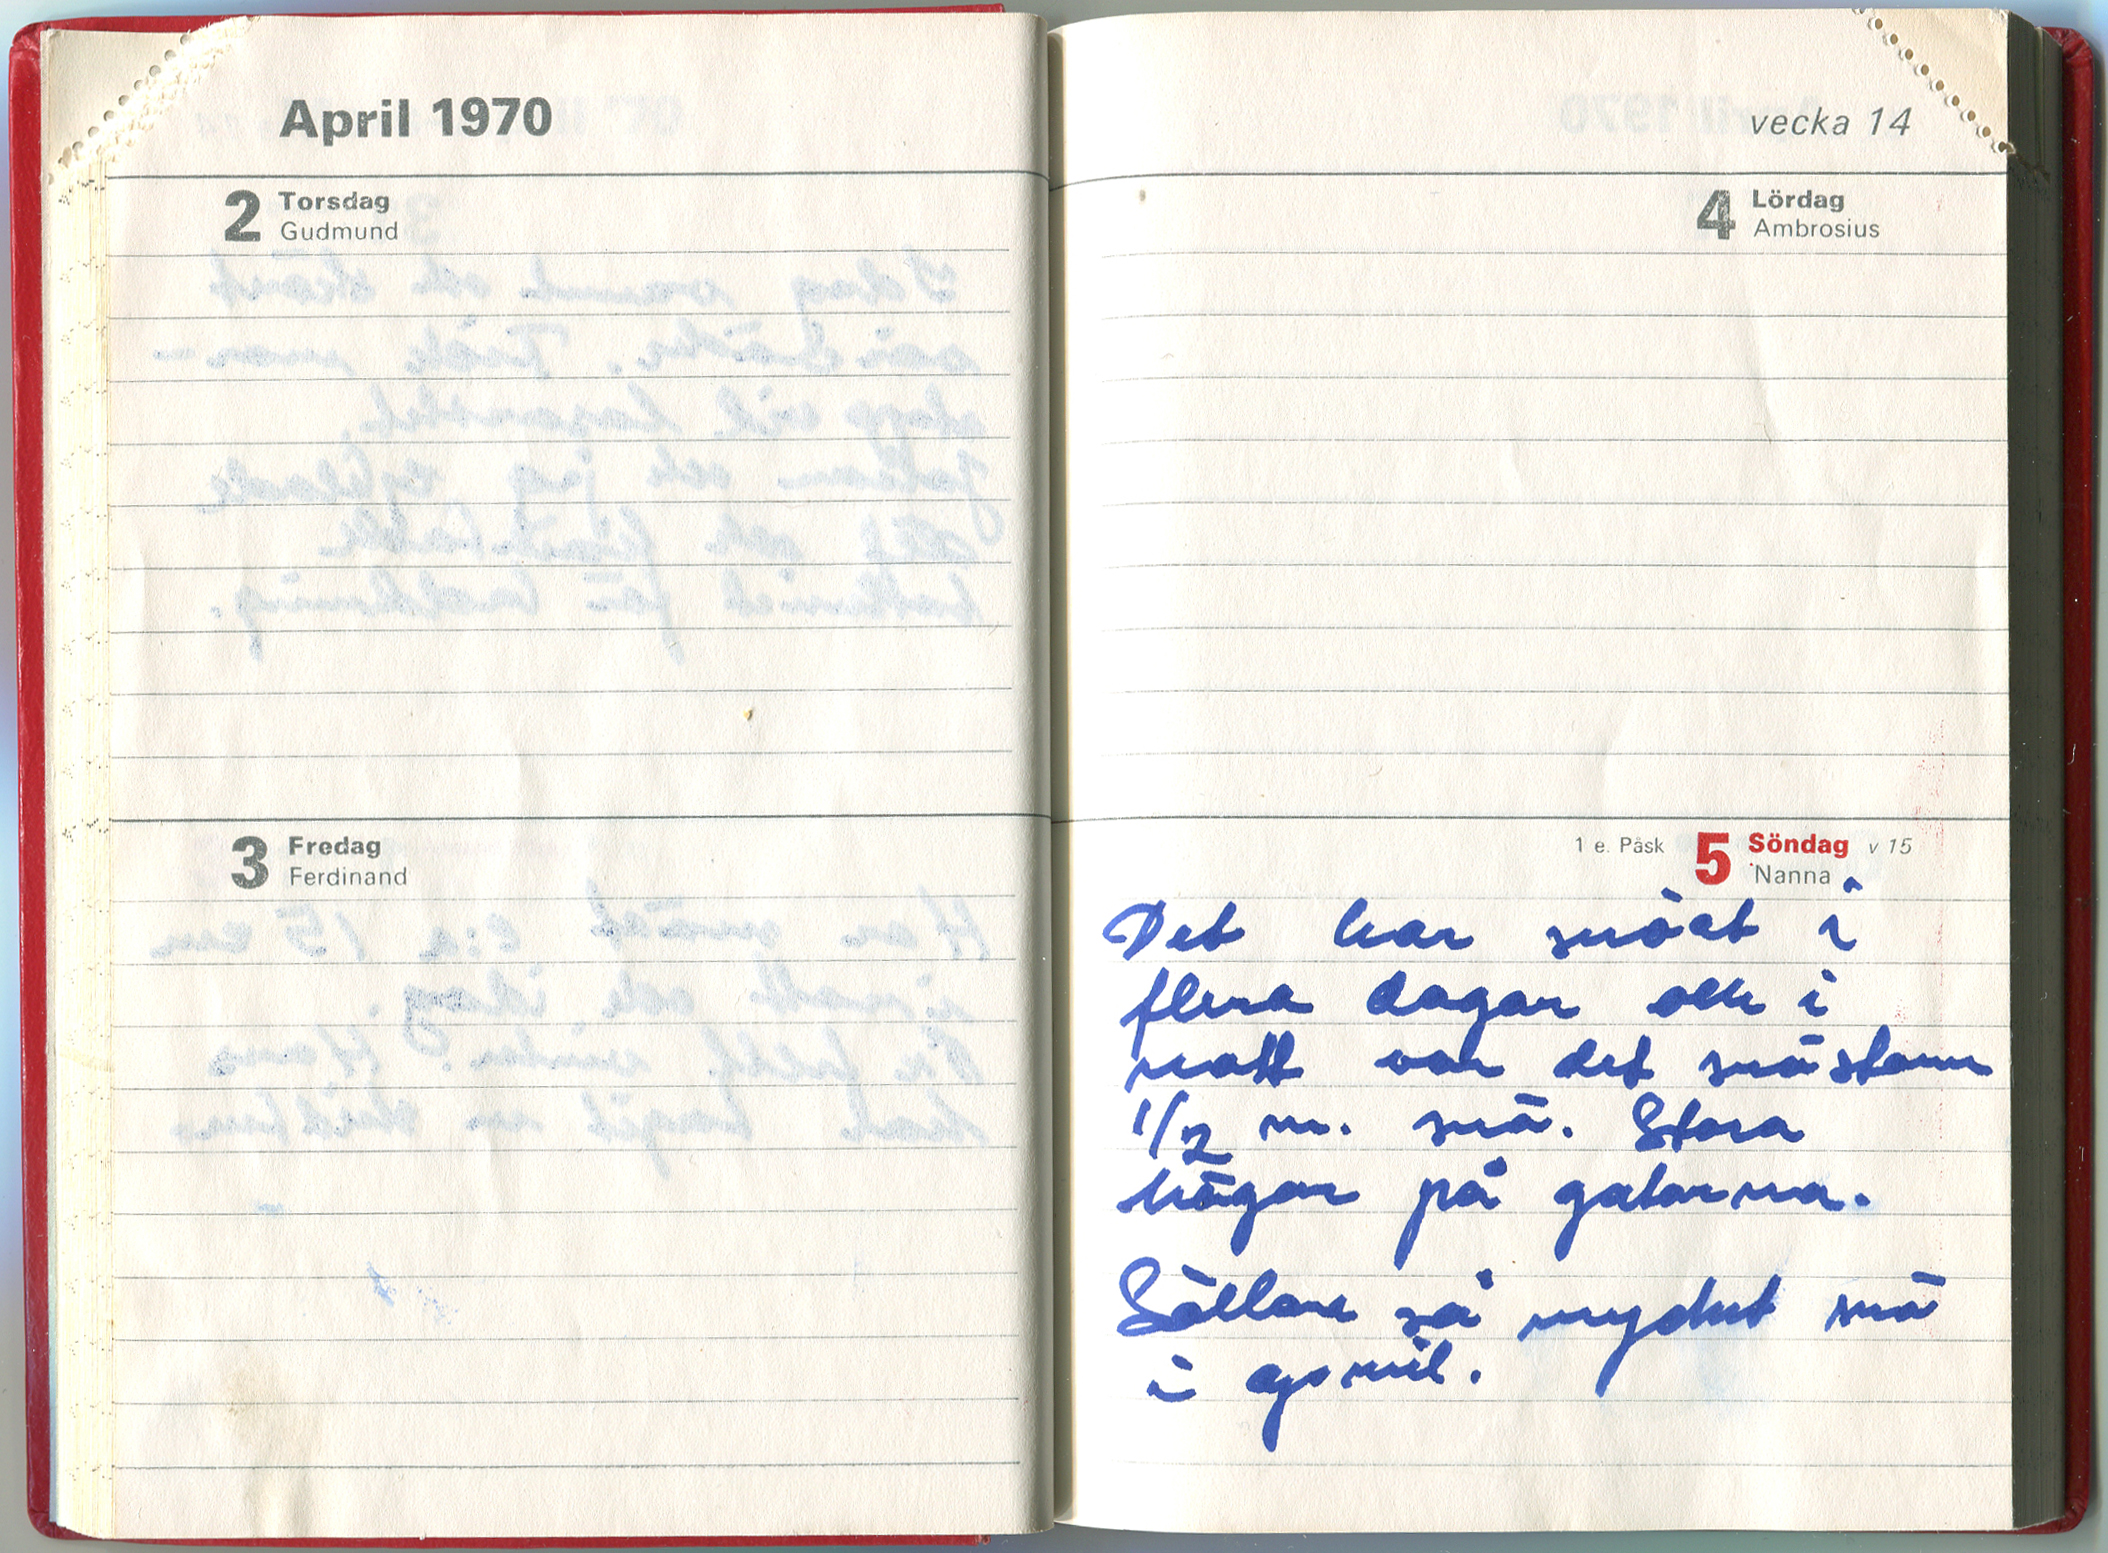 April 1970
2 Torsdag
Gudmund
3 Fredag
Ferdinand
vecka 14
4 Lördag
Ambrosius
1 e. Påsk 5 Söndag v 15
Nanna
Det har snöat i
flera dagar och i
natt var det nästann
1/2 m. snö. Stora
högar på gatorna.
Sällan så mycket snö
i april.